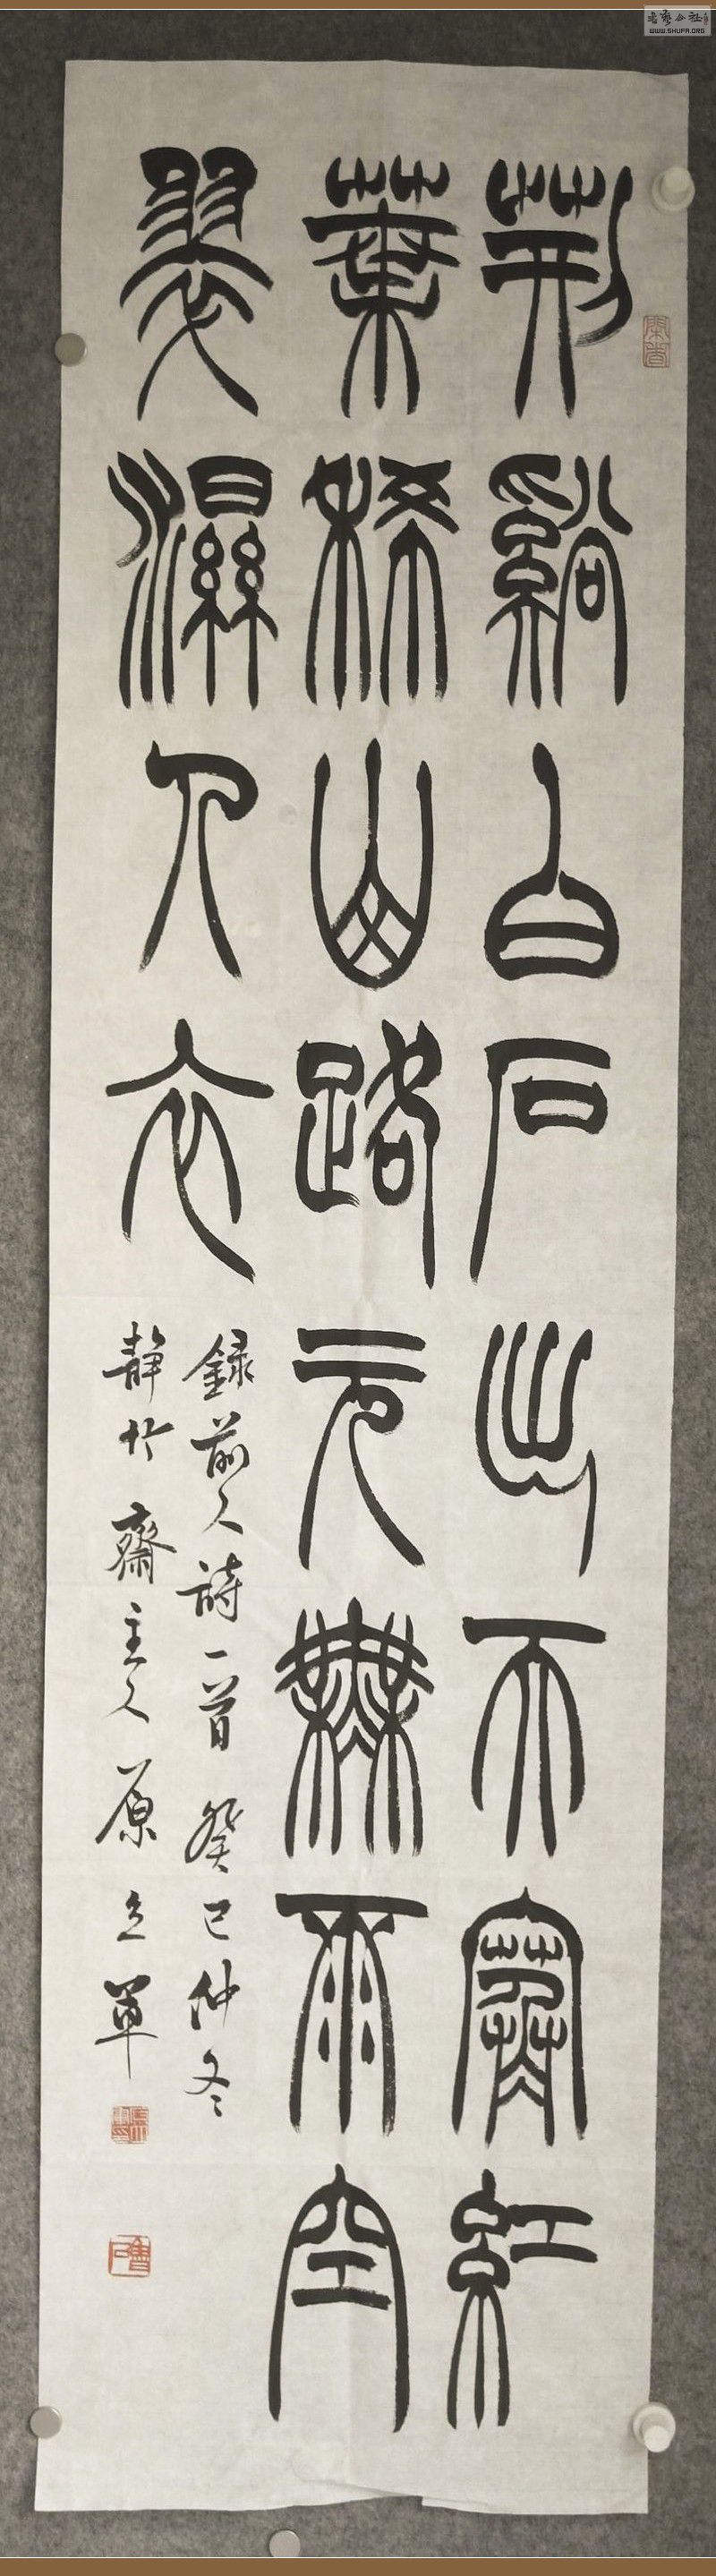 荊谿白石出天寒紅
葉稀山路元無雨空
翠濕人衣
錄前人詩一首 癸巳仲冬
靜竹齋主人原立軍
WWW.SHUFA.ORG